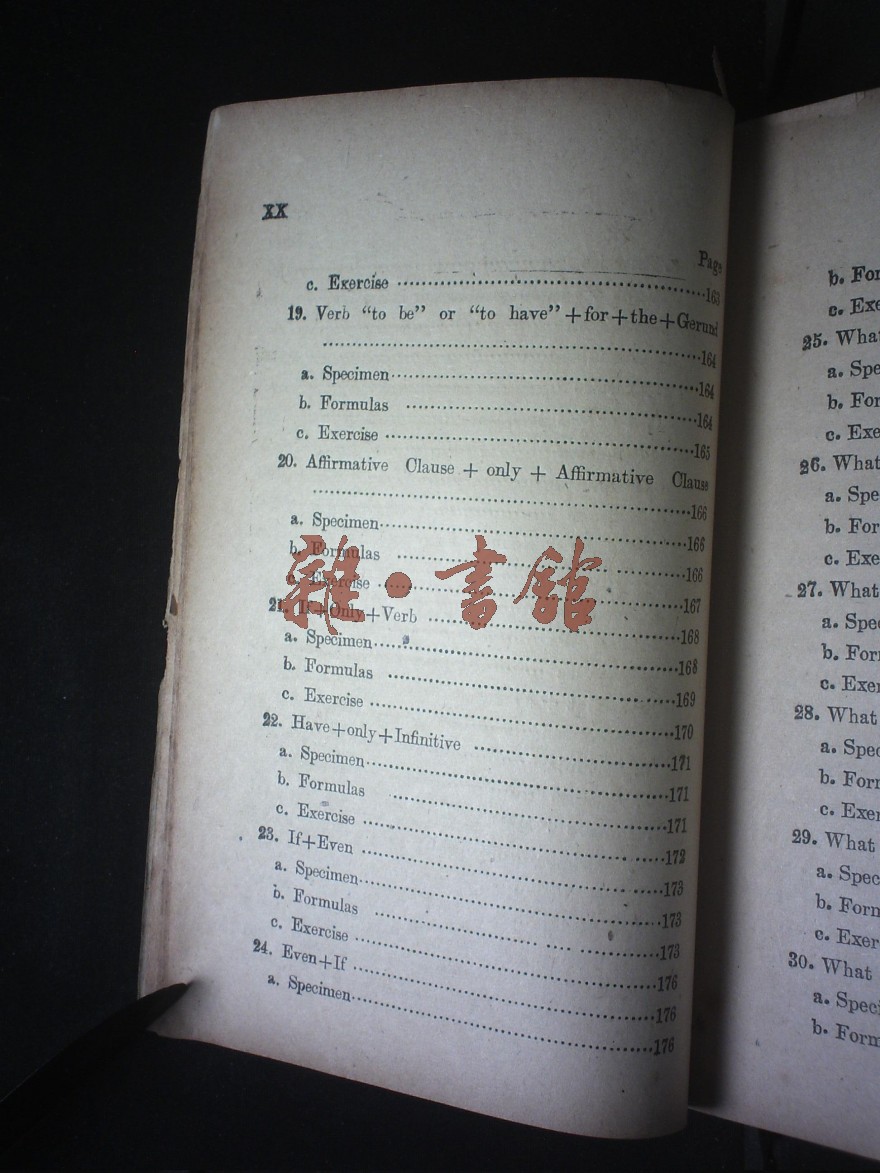 XX
Page
c. Exercise ........163
19. Verb “to be” or “to have”+for+the+Gerund
........164
a. Specimen........164
b. Formulas ........164
c. Exercise ........165
20. Affirmative Clause + only + Affirmative Clause
........166
a. Specimen........166
b. Formulas ........166
c. Exercise ........167
21. If+Only+Verb ........168
a. Specimen........168
b. Formulas ........169
c. Exercise ........170
22. Have+only+Infinitive ........171
a. Specimen........171
b. Formulas ........171
c. Exercise ........172
23. If+Even ........173
a. Specimen........173
b. Formulas ........173
c. Exercise ........176
24. Even+If ........176
a. Specimen........176
雜·書館
b. For
c. Exe
25. What
a. Spe
b. For
c. Exe
26. What
a. Spe
b. For
c. Exe
27. What
a. Spec
b. Form
c. Exer
28. What
a. Spec
b. Form
c. Exer
29. What
a. Spec
b. Form
c. Exer
30. What
a. Speci
b. Form